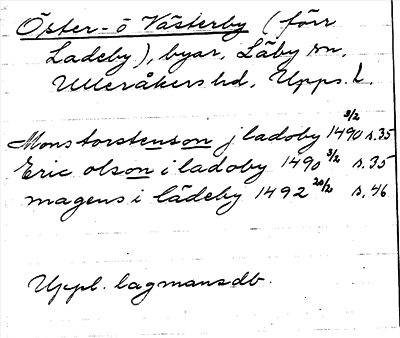 Öster- o Västerby (förr
Ladeby), byar, Läby sn,
Ulleråkers hd, Upps. l.
Mons torstenson j ladoby 1490 3/2 s. 35
Eric olson i ladoby 1490 3/2 s. 35
magens i lädeby 1492 20/2 s. 46
Uppl. lagmansdb.